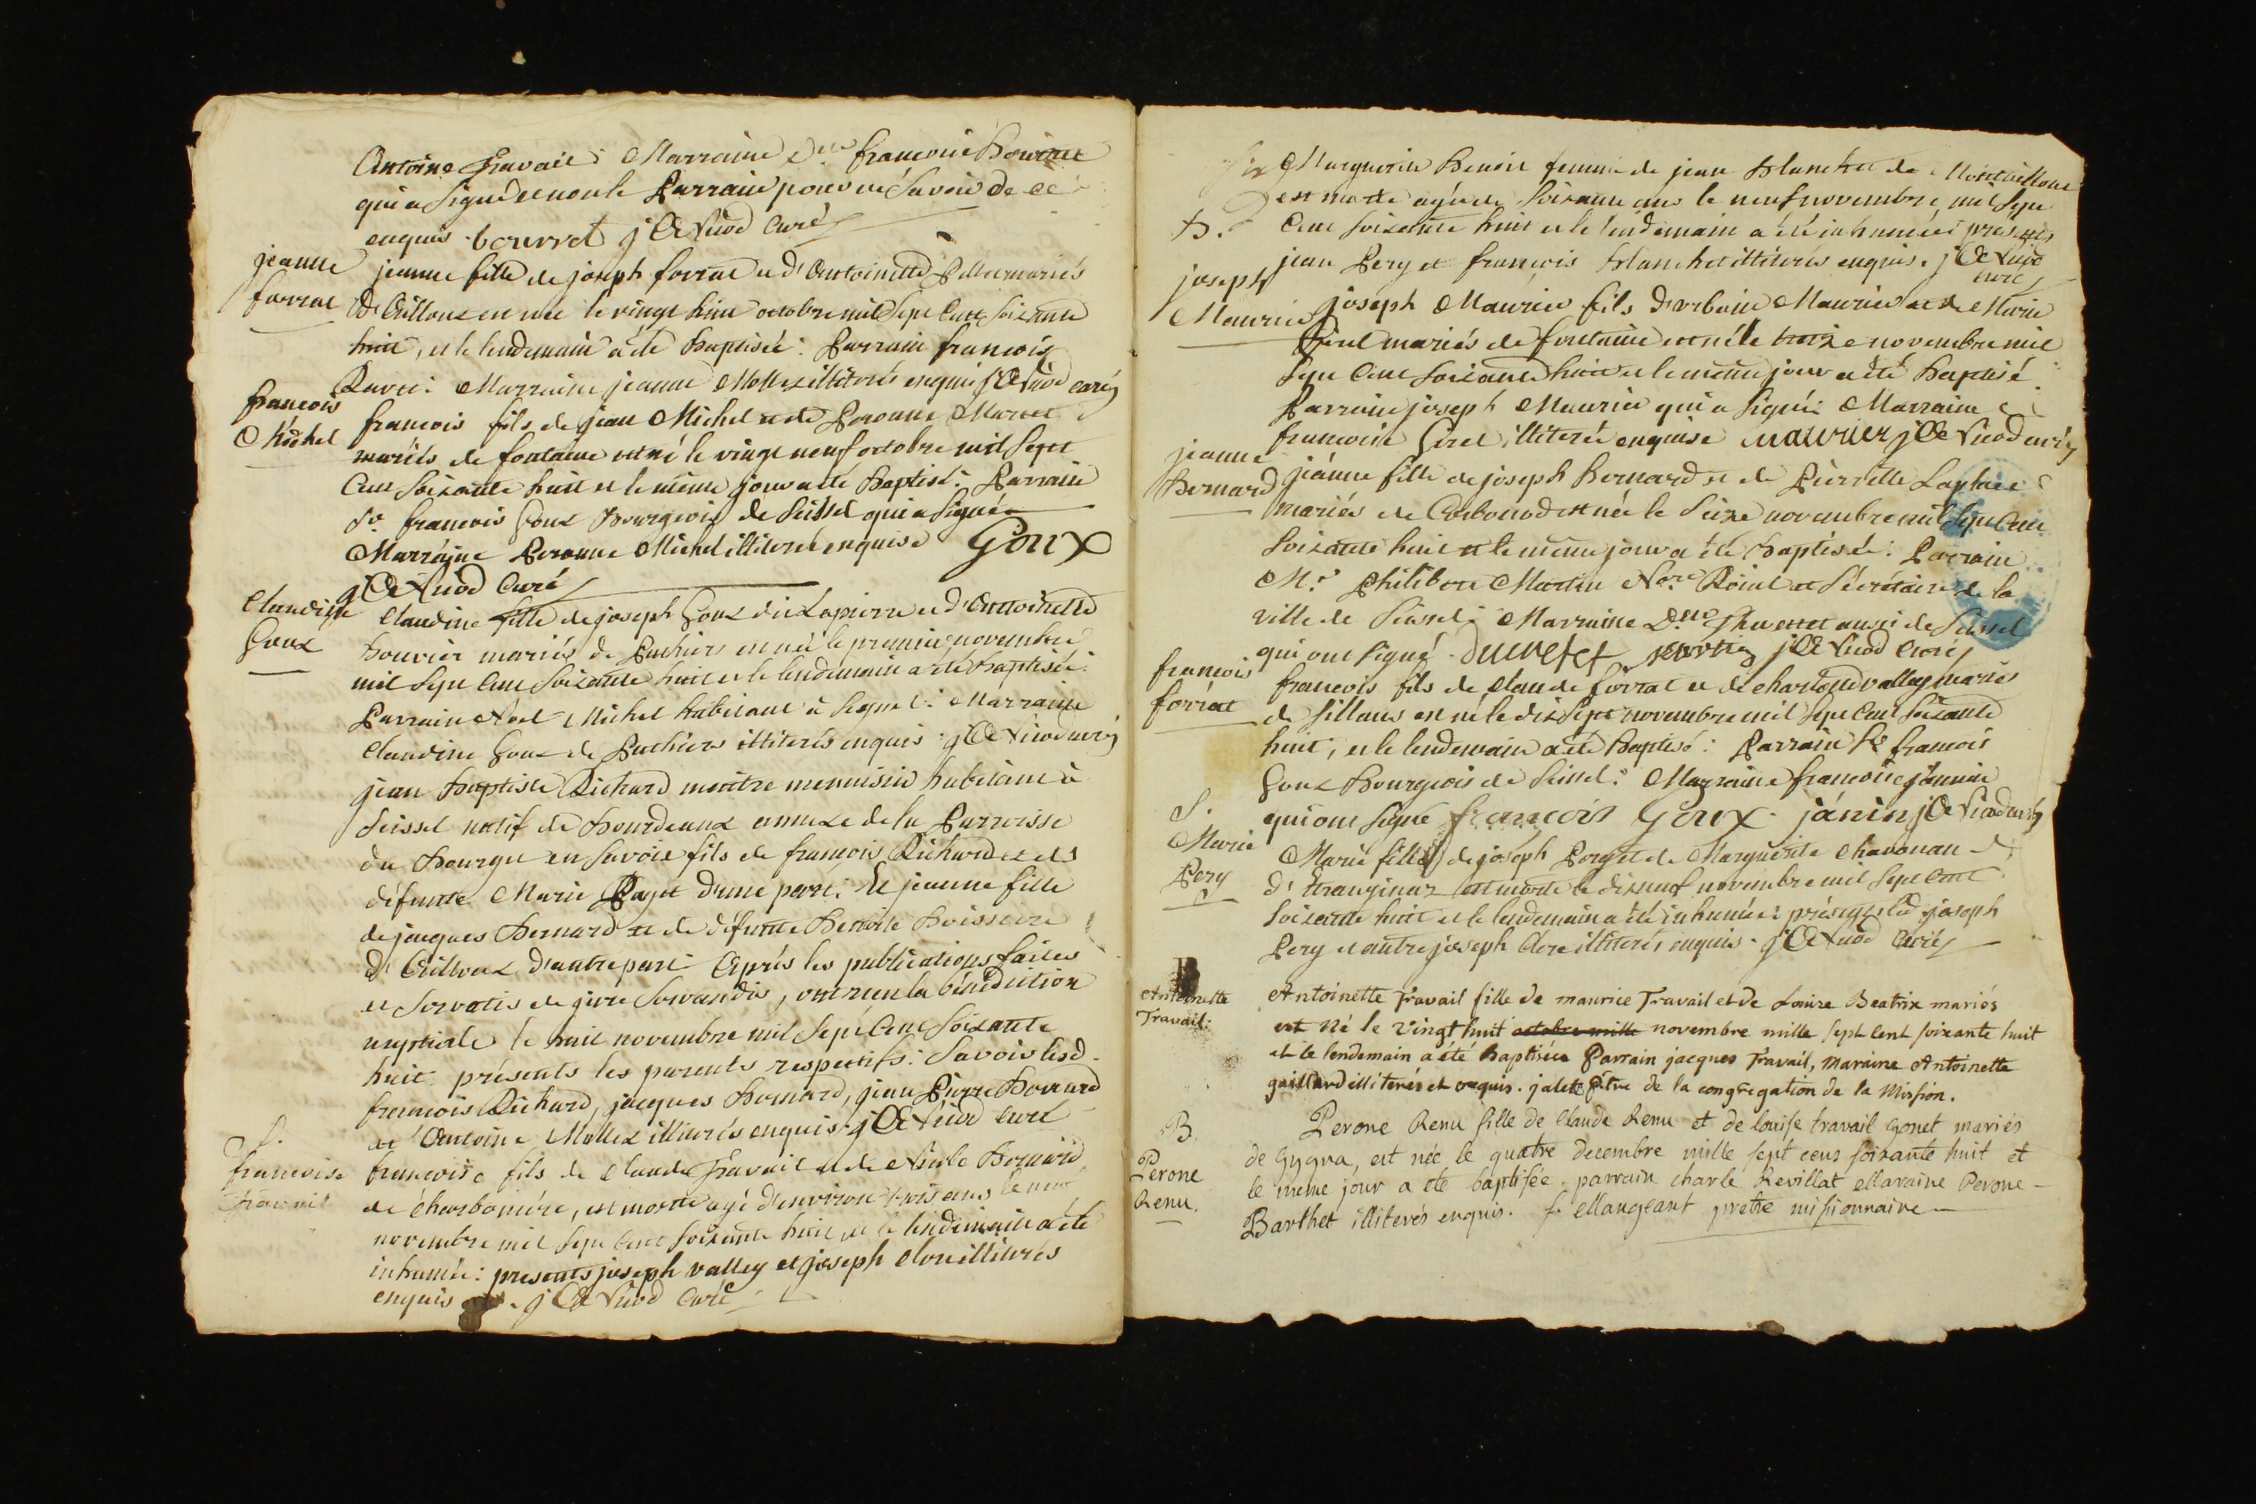 Antoine Travail : Marraine Dlle francoise Bourret
qui a signé et non le Parrain pour ne savoir de ce
enquis . bourret j C Vuod Curé
jeanne
forrat
jeanne fille de joseph forrat et d'Antoinette mariés
est née le vingt huit octobre mil sept Cent soixante
huit, et le lendemain a été Baptisée : Parrain francois
Ravoi : Marraine jeanne Mollex illiterés enquis j C Vuod curé
francois
Michel
francois fils de jean Michel et de Peronne Marcet
mariés de fontaine est né le vingt neuf octobre mil sept
Cent soixante huit et le même jour a été Baptisé : Parrain
Sr francois Goux Bourgeois de Seissel qui a signé
Marraine Peronne Michel illiterée enquise Goux
j C Vuod Curé
Claudine
Goux
Claudine fille de joseph Goux dit Lapierre et d'Antoinette
Bouvier mariés de Puthiers est née le premier novembre
mil sept Cent soixante huit et le lendemain a été baptisée :
Parrain Noel Michel habitant à : Marraine
Claudine Goux de Puthiers illiterés enquis : j C Vuod curé
jean Baptiste Richard maitre menuisier habitant à
Seissel natif de Bourdeaux annexe de la Parroisse
du Bourget en Savoie fils de francois Richard et de
défunte Marie Payet d'une part : Et jeanne fille
de jacques Bernard et de défunte Benoite Boissere
d'autre part : Après les publications faites
et servatis de jure servandis, ont reçu la bénédiction
nuptiale le huit novembre mil sept Cent soixante
huit : présents les parents respectifs : Savoir lesd.
francois Richard, jacques Bernard, jean Pierre Bernard
et Antoine Mollex illiterés enquis j C Vuod curé
S.
francoise
Travail
francoise fils de Claude Travail et de Nicole Bernard
de charbonière, est morte agé d'environ trois ans le
novembre mil sept Cent soixante huit et le lendemain a été
inhumée : presents joseph valley et joseph Clore illiterés
enquis . j C Vuod Curé
Marguerite Benoit femme de jean Blanchet de
est morte agée de soixante ans le neuf novembre mil sept
Cent soixante huit et le lendemain a été inhumée : presents
jean Pery et francois Blanchet illiterés enquis . j C Vuod
curé
B.
joseph
Maurier
joseph Maurier fils d'urbain Maurier et de Marie
Girel mariés de fontaine est né le treize novembre mil
sept Cent soixante huit et le même jour a été Baptisé :
Parrain joseph Maurier qui a signé : Marraine
francoise Girel illiterée enquise maurier j C Vuod curé
jeanne
Bernard
jeanne fille de joseph Bernard et de Pierrette Laplace
mariés de Corbonod est née le seize novembre mil sept Cent
soixante huit et le même jour a été Baptisée : Parrain
Mr Philibert Martin Nore Roial et Sécrétaire de la
ville de Seissel : Marraine Dlle aussi de Seissel
qui ont signé . martin j C Vuod Curé
francois
forrat
francois fils de claude forrat et de charlotte valley mariés
de Sillans est né le dix sept novembre mil sept Cent soixante
huit, et le lendemain a été Baptisé : Parrain Sr francois
Goux Bourgeois de Seissel : Marraine francoise jannin
qui ont signé francois Goux . jánin j C Vuod curé
S.
Marie
Pery
Marie fille de joseph Pery et de Marguerite Chavanan
d' Etranginaz est morte le dix neuf novembre mil sept Cent
soixante huit et le lendemain a été inhumée : présents led joseph
Pery et autre joseph Clere illiterés enquis . j C Vuod Curé
B
Antoinette
Travail :
Antoinette Travail fille de maurice Travail et de Louise Beatrix mariés
est Né le vingt huit octobre mille novembre mille sept Cent soixante huit
et le lendemain a été Baptisée Parrain jacques Travail, Maraine Antoinette
gaillard illiterés et enquis . jalet ptre de la congregation de la Mission .
B.
Perone
Renu.
Perone Renu fille de Claude Renu et de louise travail Gonet mariés
de Gygna, est née le quatre decembre mille sept cens soixante huit et
le meme jour a été baptisée . parrain charle Revillat Maraine Perone
Barthet illiterés enquis . Mangeant pretre missionnaire